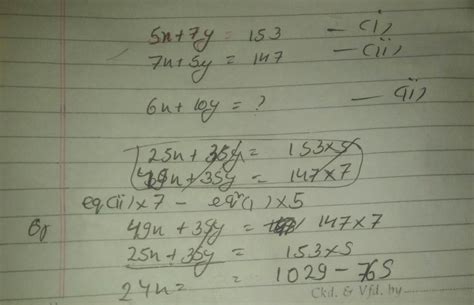 5x+7y = 153 —(i)
7x+5y = 147 —(ii)
6x+10y = ? —(iii)
25x + 35y = 153×5
49x + 35y = 147×7
eq(ii)×7 - eqⁿ(i)×5
By 49x + 35y = 147×7
25x + 35y = 153×5
24x = = 1029-765
Ckd. & Vfd. by